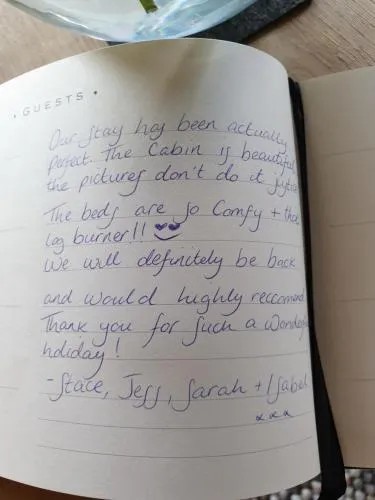 • GUESTS •
Our stay has been actually
perfect. The Cabin is beautiful,
the pictures don't do it justice
The beds are so Comfy + that
log burner!!
We will definitely be back
and would highly reccomend
Thank you for such a wonderful
holiday!
- Stace, Jess, Sarah + Isabel
xxx